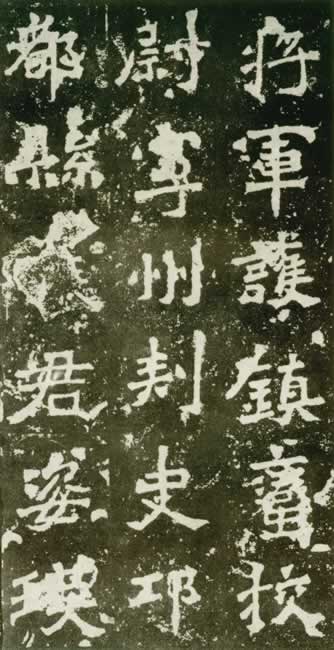 將軍護鎮蠻校
尉寧州刺史邛
都縣君姿瑛